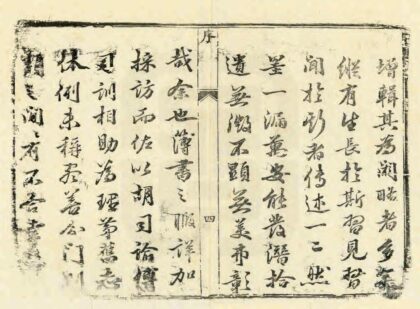 增輯其為闕略者多矣
縱有生長於斯習見習
聞於斯者傳述一二然
罣一漏萬安能發潛拾
遺無微不顯無美弗彰
序
四
哉余也簿書之暇詳加
採訪而佐以胡司諭傅
司訓相助為理第舊志
体例未稱盡善分門別
之間有不合